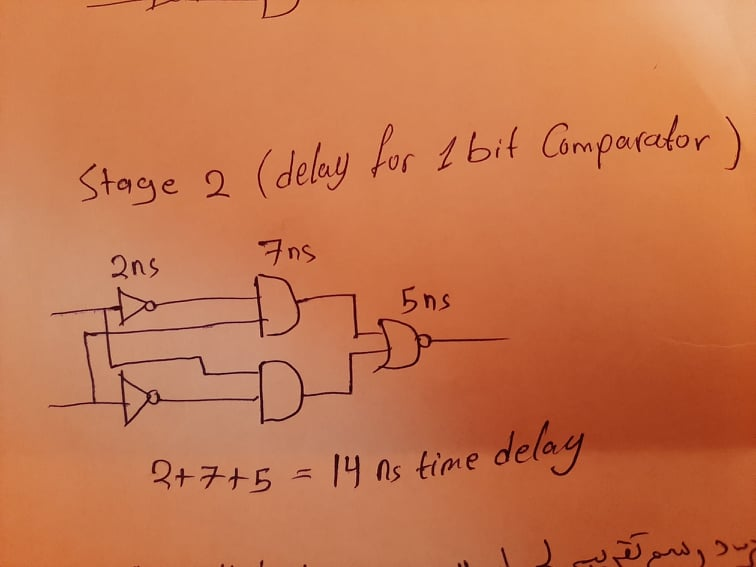 Stage 2 (delay for 1 bit Comparator)
7ns
2ns
5ns
2+7+5 = 14 ns time delay